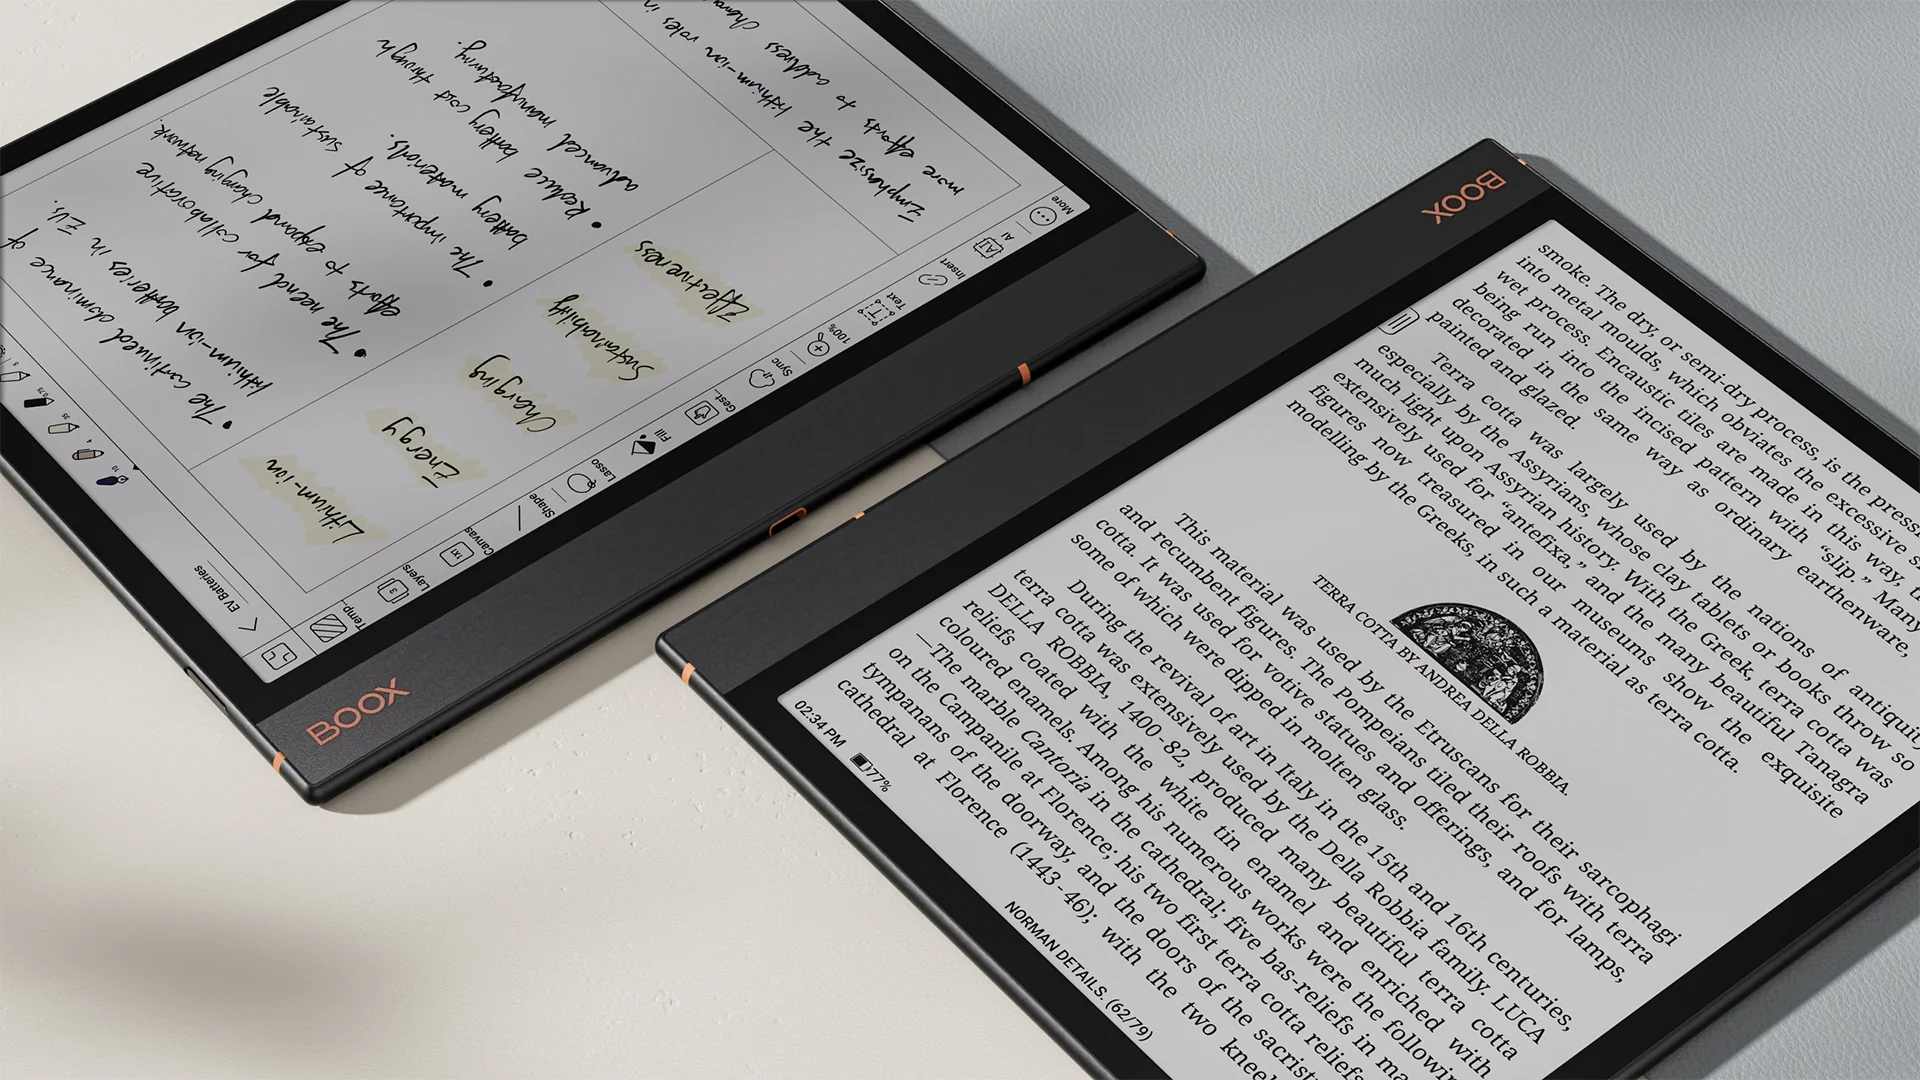 BOOX
EV Batteries
Temp...
Layers
Canvas
Shape
Lasso
Fill
Gest...
Sync
100%
Text
Insert
AI
More
Lithium-ion
Energy
Charging
Sustainability
Effectiveness
• The continued dominance of
lithium-ion batteries in EVs.
• The need for collaborative
efforts to expand charging network.
• The importance of sustainable
battery materials.
• Reduce battery cost through
advanced manufacturing.
Emphasize the lithium-ion roles in
more efforts to address
BOOX
smoke. The dry, or semi-dry process, is the
into metal moulds, which obviates the excessive
wet process. Encaustic tiles are made in this way,
being run into the incised pattern with “slip.” Many
decorated in the same way as ordinary earthenware,
painted and glazed.
Terra cotta was largely used by the nations of
especially by the Assyrians, whose clay tablets or books throw so
much light upon Assyrian history. With the Greek, terra cotta was
extensively used for “antefixa,” and the many beautiful Tanagra
figures now treasured in our museums show the exquisite
modelling by the Greeks, in such a material as terra cotta.
TERRA COTTA BY ANDREA DELLA ROBBIA.
This material was used by the Etruscans for their sarcophagi
and recumbent figures. The Pompeians tiled their roofs with terra
cotta. It was used for votive statues and offerings, and for lamps,
some of which were dipped in molten glass.
During the revival of art in Italy in the 15th and 16th centuries,
terra cotta was extensively used by the Della Robbia family. LUCA
DELLA ROBBIA, 1400-82, produced many beautiful terra cotta
reliefs coated with the white tin enamel and enriched with
coloured enamels. Among his numerous works were the following
—The marble Cantoria in the cathedral; five bas-reliefs in
on the Campanile at Florence; his two first terra cotta reliefs
tympanans of the doorway, and the doors of the
cathedral at Florence (1443-46); with the two
02:34 PM
77%
NORMAN DETAILS. (62/79)